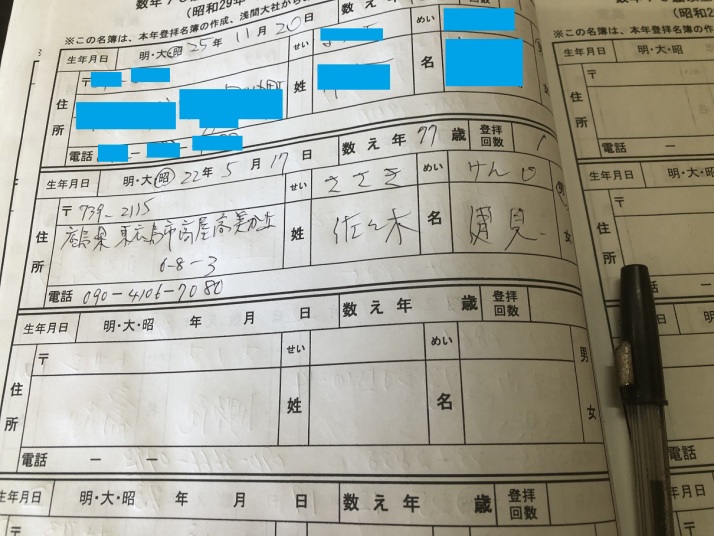 数年
(昭和29年
※この名簿は、本年登拝名簿の作成、浅間大社から
生年月日 明・大・昭 25年 11月 20日 数え年 歳 登拝回数
〒
住所
せい
めい
姓
名
電話
生年月日 明・大・昭 22年 5月 17日 数え年 77歳 登拝回数 1
〒739-2115
せい ささき めい けんじ
住所 広島県東広島市高屋高美が丘
6-8-3
姓 佐々木 名 見 男 女
電話 090-4106-7080
生年月日 明・大・昭 年 月 日 数え年 歳 登拝回数
〒 せい めい
住所 姓 名 男 女
電話 ー ー
生年月日 明・大・昭 年 月 日 数え年 歳 登拝回数
〒
(昭和2
※この名簿は、本年登拝
生年月日 明・大・
〒
住所
電話 ー
生年月日 明・大
〒
住所